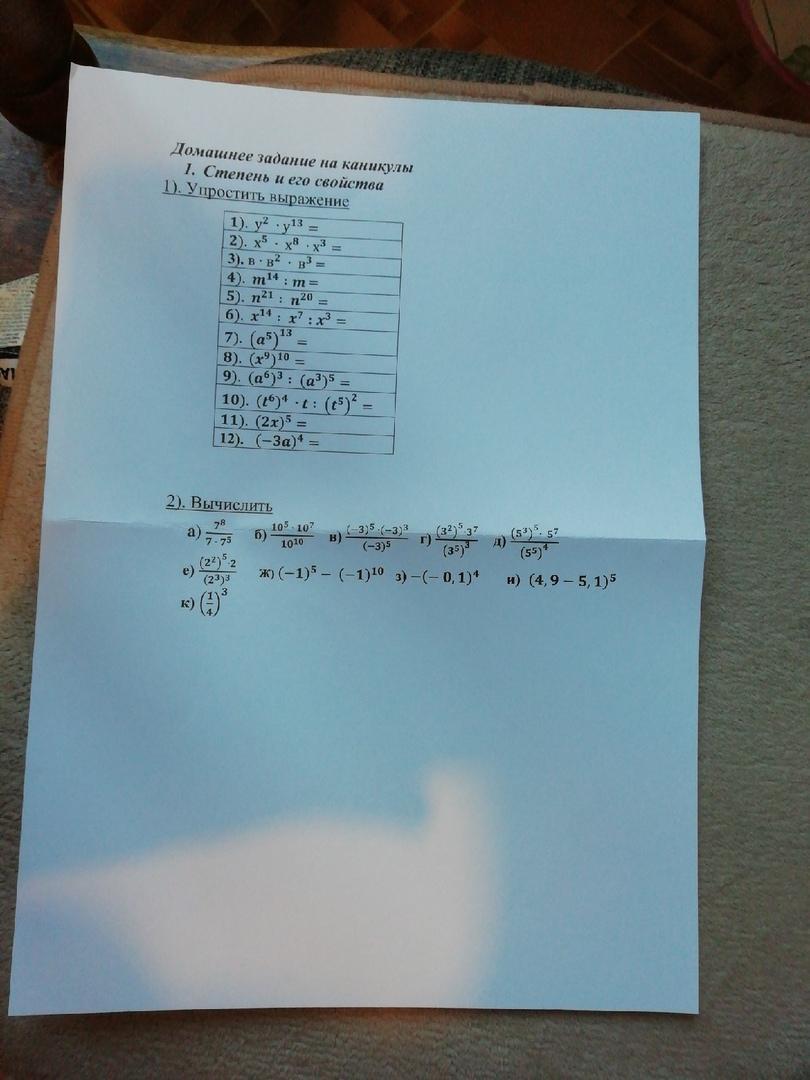 Домашнее задание на каникулы
1. Степень и его свойства
1). Упростить выражение
1). y² · y¹³ =
2). x⁵ · x⁸ · x³ =
3). в · в² · в³ =
4). m¹⁴ : m =
5). n²¹ : n²⁰ =
6). x¹⁴ : x⁷ : x³ =
7). (a⁵)¹³ =
8). (x⁹)¹⁰ =
9). (a⁶)³ : (a³)⁵ =
10). (t⁶)⁴ · t : (t⁵)² =
11). (2x)⁵ =
12). (−3a)⁴ =
2). Вычислить
а) 7⁸/(7 · 7⁵) б) (10⁵ · 10⁷)/10¹⁰ в) ((−3)⁵ · (−3)³)/(−3)⁵ г) ((3²)⁵ · 3⁷)/(3⁵)³ д) ((5³)⁵ · 5⁷)/(5⁵)⁴
е) ((2²)⁵ · 2)/(2³)³ ж) (−1)⁵ − (−1)¹⁰ з) −(− 0, 1)⁴ и) (4, 9 − 5, 1)⁵
к) (1/4)³